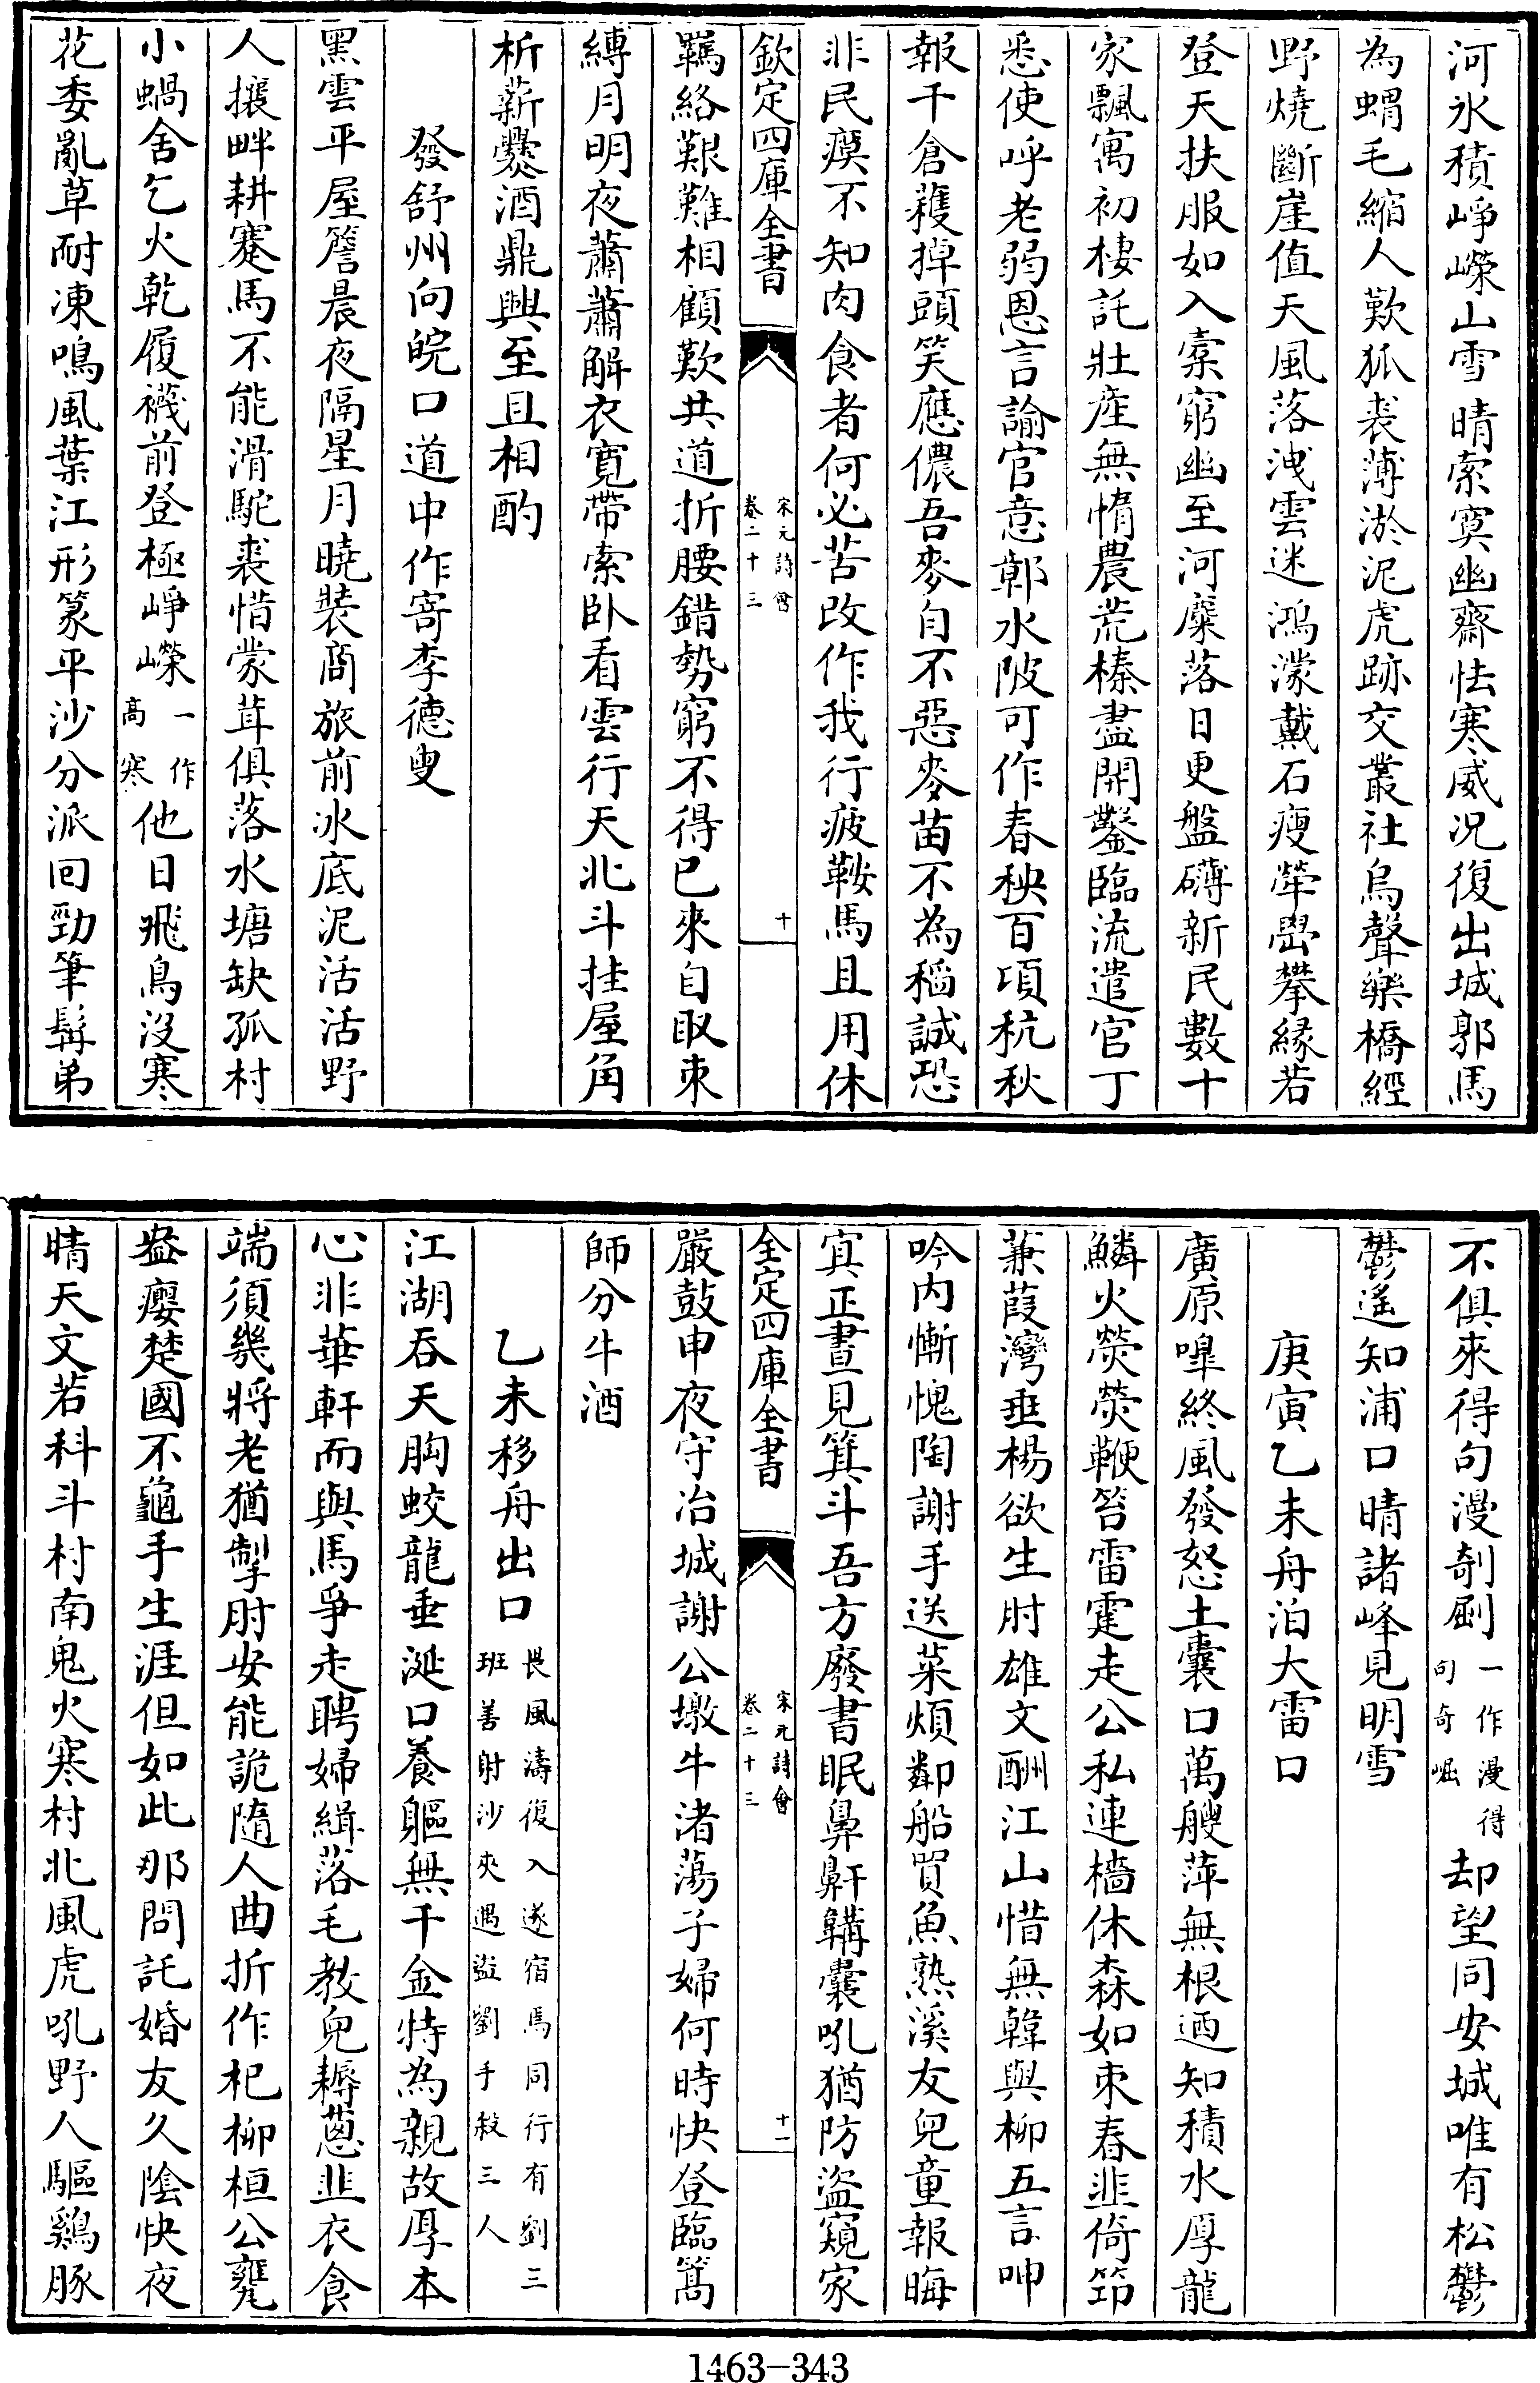 河氷積崢嶸山雪晴索寞幽齋怯寒威况復出城郭馬
為蝟毛縮人歎狐裘薄淤泥虎跡交叢社烏聲樂橋經
野燒斷崖值天風落洩雲迷鴻濛戴石瘦犖嶨攀緣若
登天扶服如入橐窮幽至河麋落日更盤礴新民數十
家飄寓初棲託壯產無惰農荒榛盡開鑿臨流遣官丁
悉使呼老弱恩言諭官意鄣水陂可作春秧百頃秔秋
報千倉穫掉頭笑應儂吾麥自不惡麥苗不為稻誠恐
非民瘼不知肉食者何必苦改作我行疲鞍馬且用休
欽定四庫全書
宋元詩會
卷二十三
十
羈絡艱難相顧歎共道折腰錯勢窮不得已來自取束
縛月明夜蕭蕭解衣寬帶索卧看雲行天北斗挂屋角
析薪爨酒鼎興至且相酌
發舒州向皖口道中作寄李德叟
黑雲平屋簷晨夜隔星月曉裝商旅前冰底泥活活野
人攘畔耕蹇馬不能滑駝裘惜蒙茸俱落水塘缺孤村
小蝸舍乞火乾履襪前登極崢嶸
一作
高寒
他日飛鳥没寒
花委亂草耐凍鳴風葉江形篆平沙分派回勁筆髯弟
不俱來得句漫剞劂
一作漫得
句奇崛
却望同安城唯有松鬱
鬱遙知浦口晴諸峰見明雪
庚寅乙未舟泊大雷口
廣原嘷終風發怒土囊口萬艘萍無根迺知積水厚龍
鱗火熒熒鞭笞雷霆走公私連檣休森如束春韭倚笻
蒹葭灣垂楊欲生肘雄文酬江山惜無韓與柳五言呻
吟内慚愧陶謝手送菜煩鄰船買魚熟溪友兒童報晦
寘正晝見箕斗吾方廢書眠鼻鼾韝囊吼猶防盜窺家
全定四庫全書
宋元詩會
卷二十三
十一
嚴鼓申夜守冶城謝公墩牛渚蕩子婦何時快登臨篙
師分牛酒
乙未移舟出口
畏風濤復入遂宿焉同行有劉三
班善射沙夾遇盜劉手殺三人
江湖吞天胸蛟龍垂涎口養軀無千金特為親故厚本
心非華軒而與馬爭走聘婦緝落毛教兒耨蔥韭衣食
端須幾將老猶掣肘安能詭隨人曲折作杞柳桓公甕
盎癭楚國不龜手生涯但如此那問託婚友久陰快夜
晴天文若科斗村南鬼火寒村北風虎吼野人驅鷄豚
1463-343